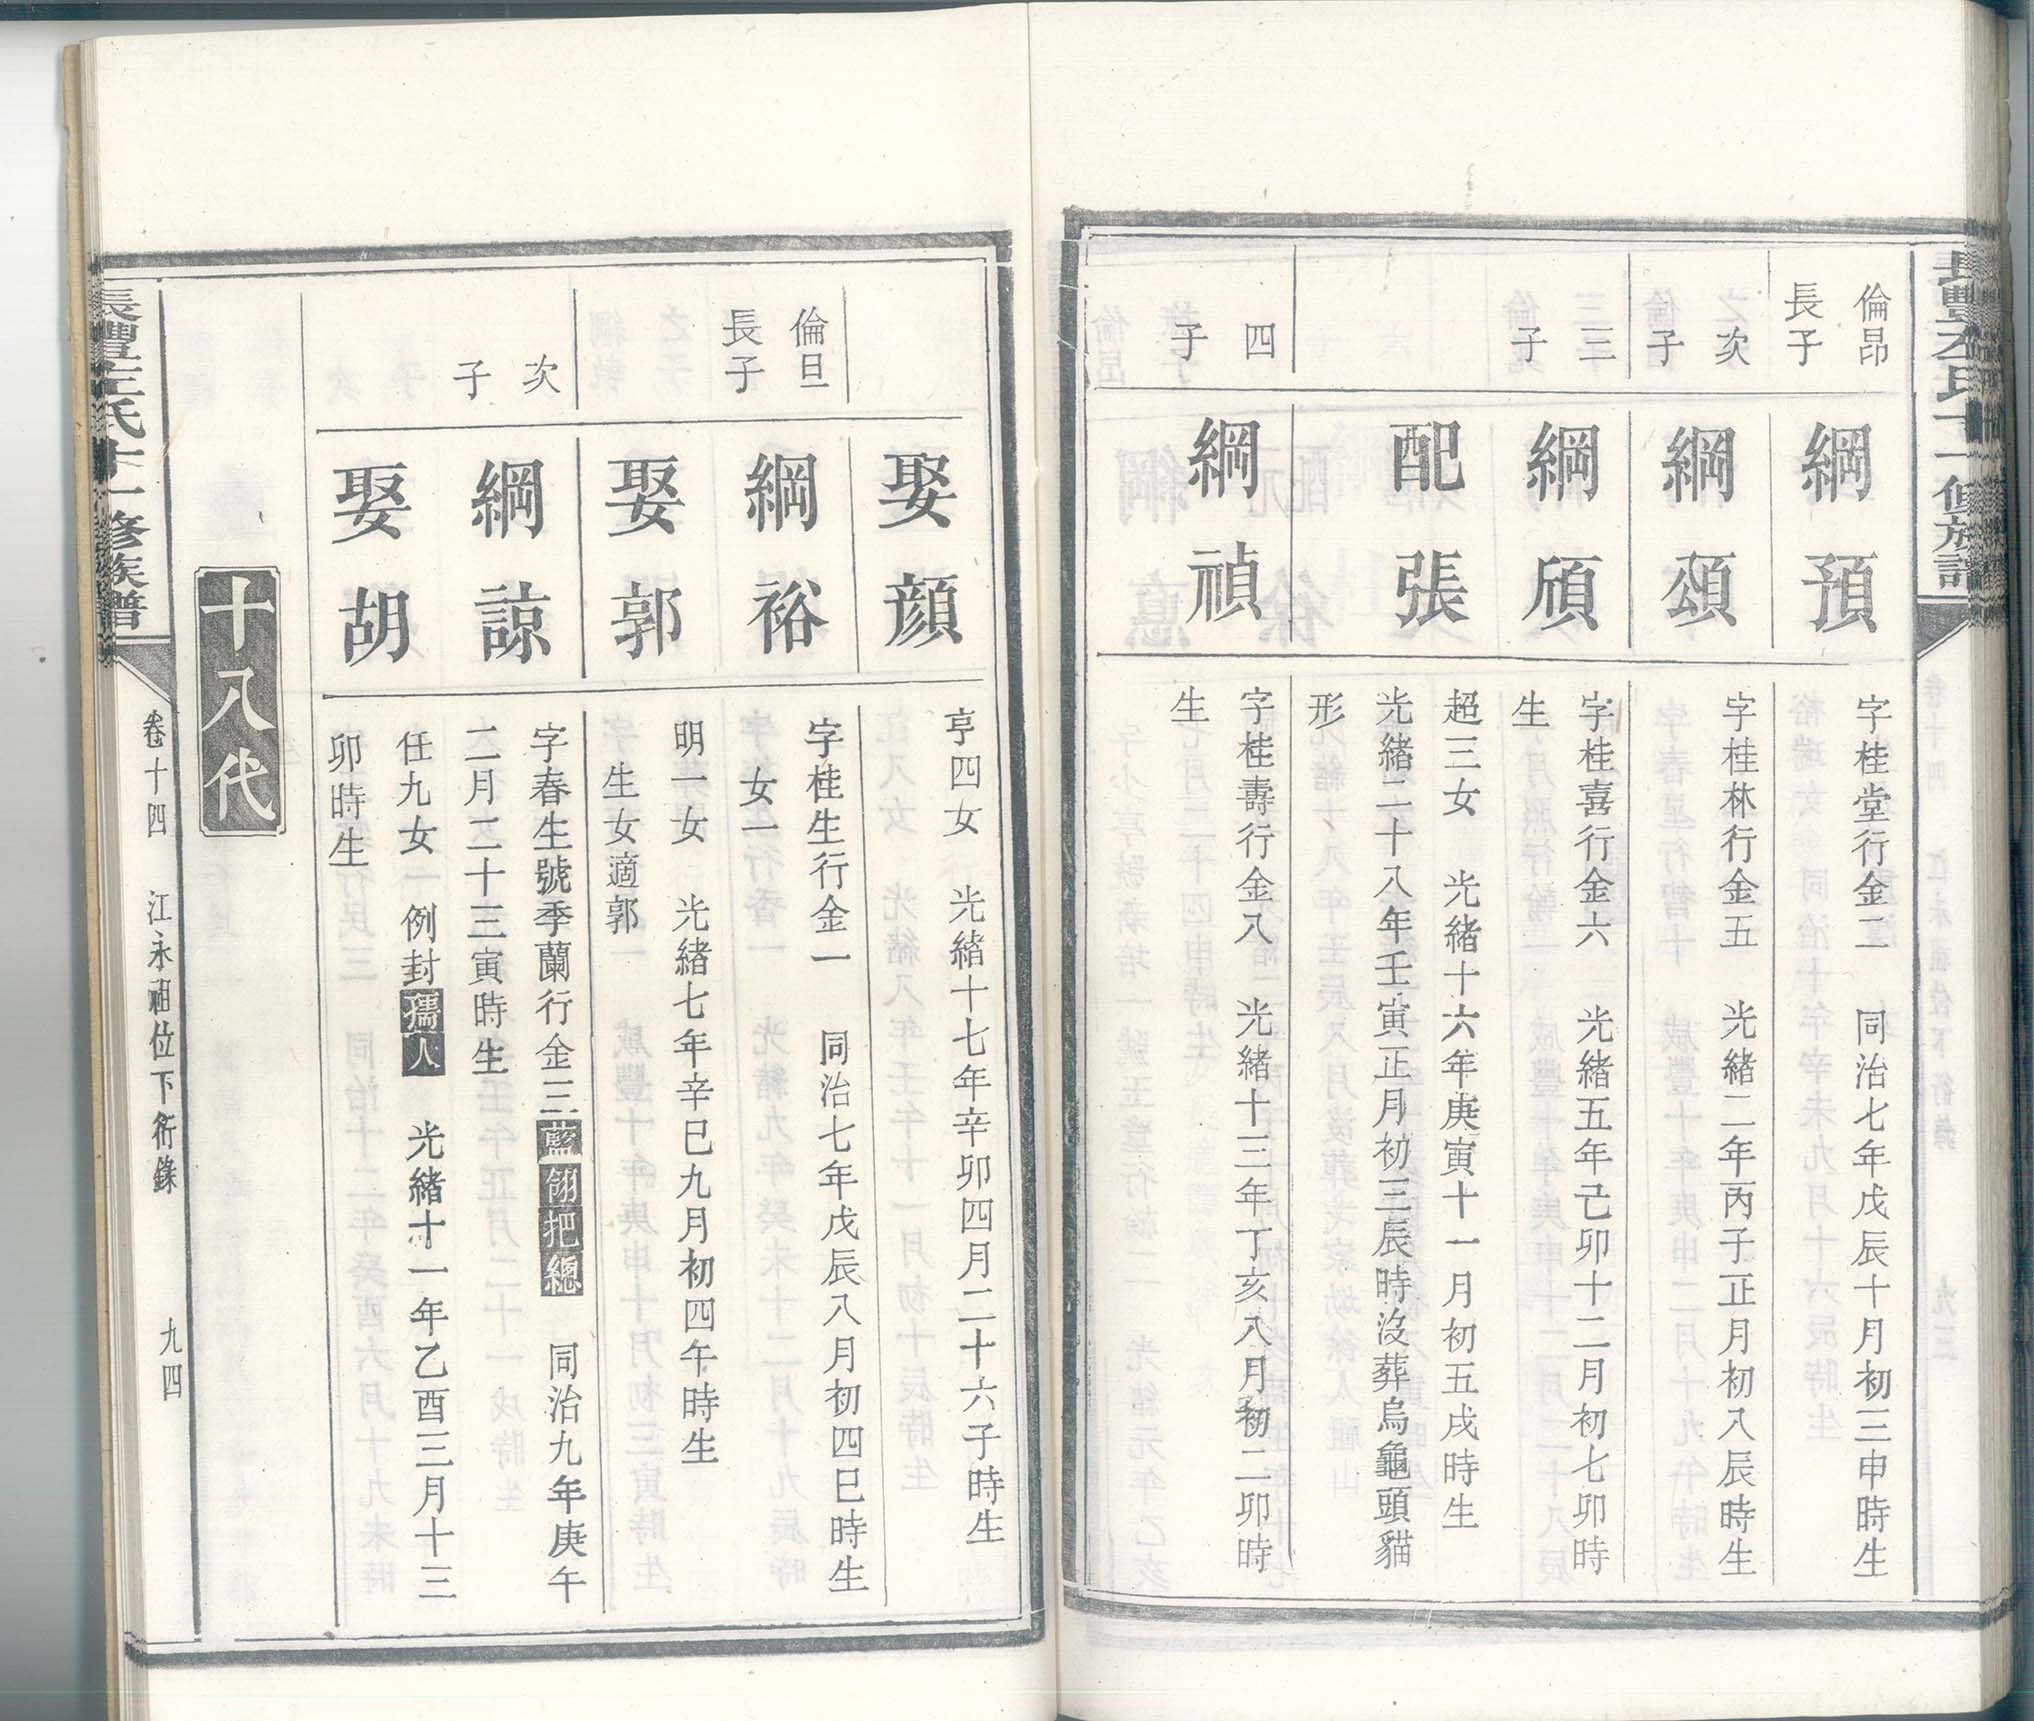 長豐左氏十一修族譜
倫昂
長子
綱預
字桂堂行金二　同治七年戊辰十月初三申時生
次
子
綱頌
字桂林行金五　光緒二年丙子正月初八辰時生
三
子
綱頎
字桂喜行金六　光緒五年己卯十二月初七卯時
生
配張
超三女　光緒十六年庚寅十一月初五戌時生
光緒二十八年壬寅正月初三辰時沒葬烏龜頭貓
形
四
子
綱禎
字桂壽行金八　光緒十三年丁亥八月初二卯時
生
娶顏
亨四女　光緒十七年辛卯四月二十六子時生
倫旦
長子
綱裕
字桂生行金一　同治七年戊辰八月初四巳時生
女一
娶郭
明一女　光緒七年辛巳九月初四午時生
生女適郭
次
子
綱諒
字春生號季蘭行金三藍翎把總　同治九年庚午
二月二十三寅時生
娶胡
任九女　例封孺人　光緒十一年乙酉三月十三
卯時生
十八代
長豐左氏十一修族譜
卷十四　江永祖位下衍錄　九四